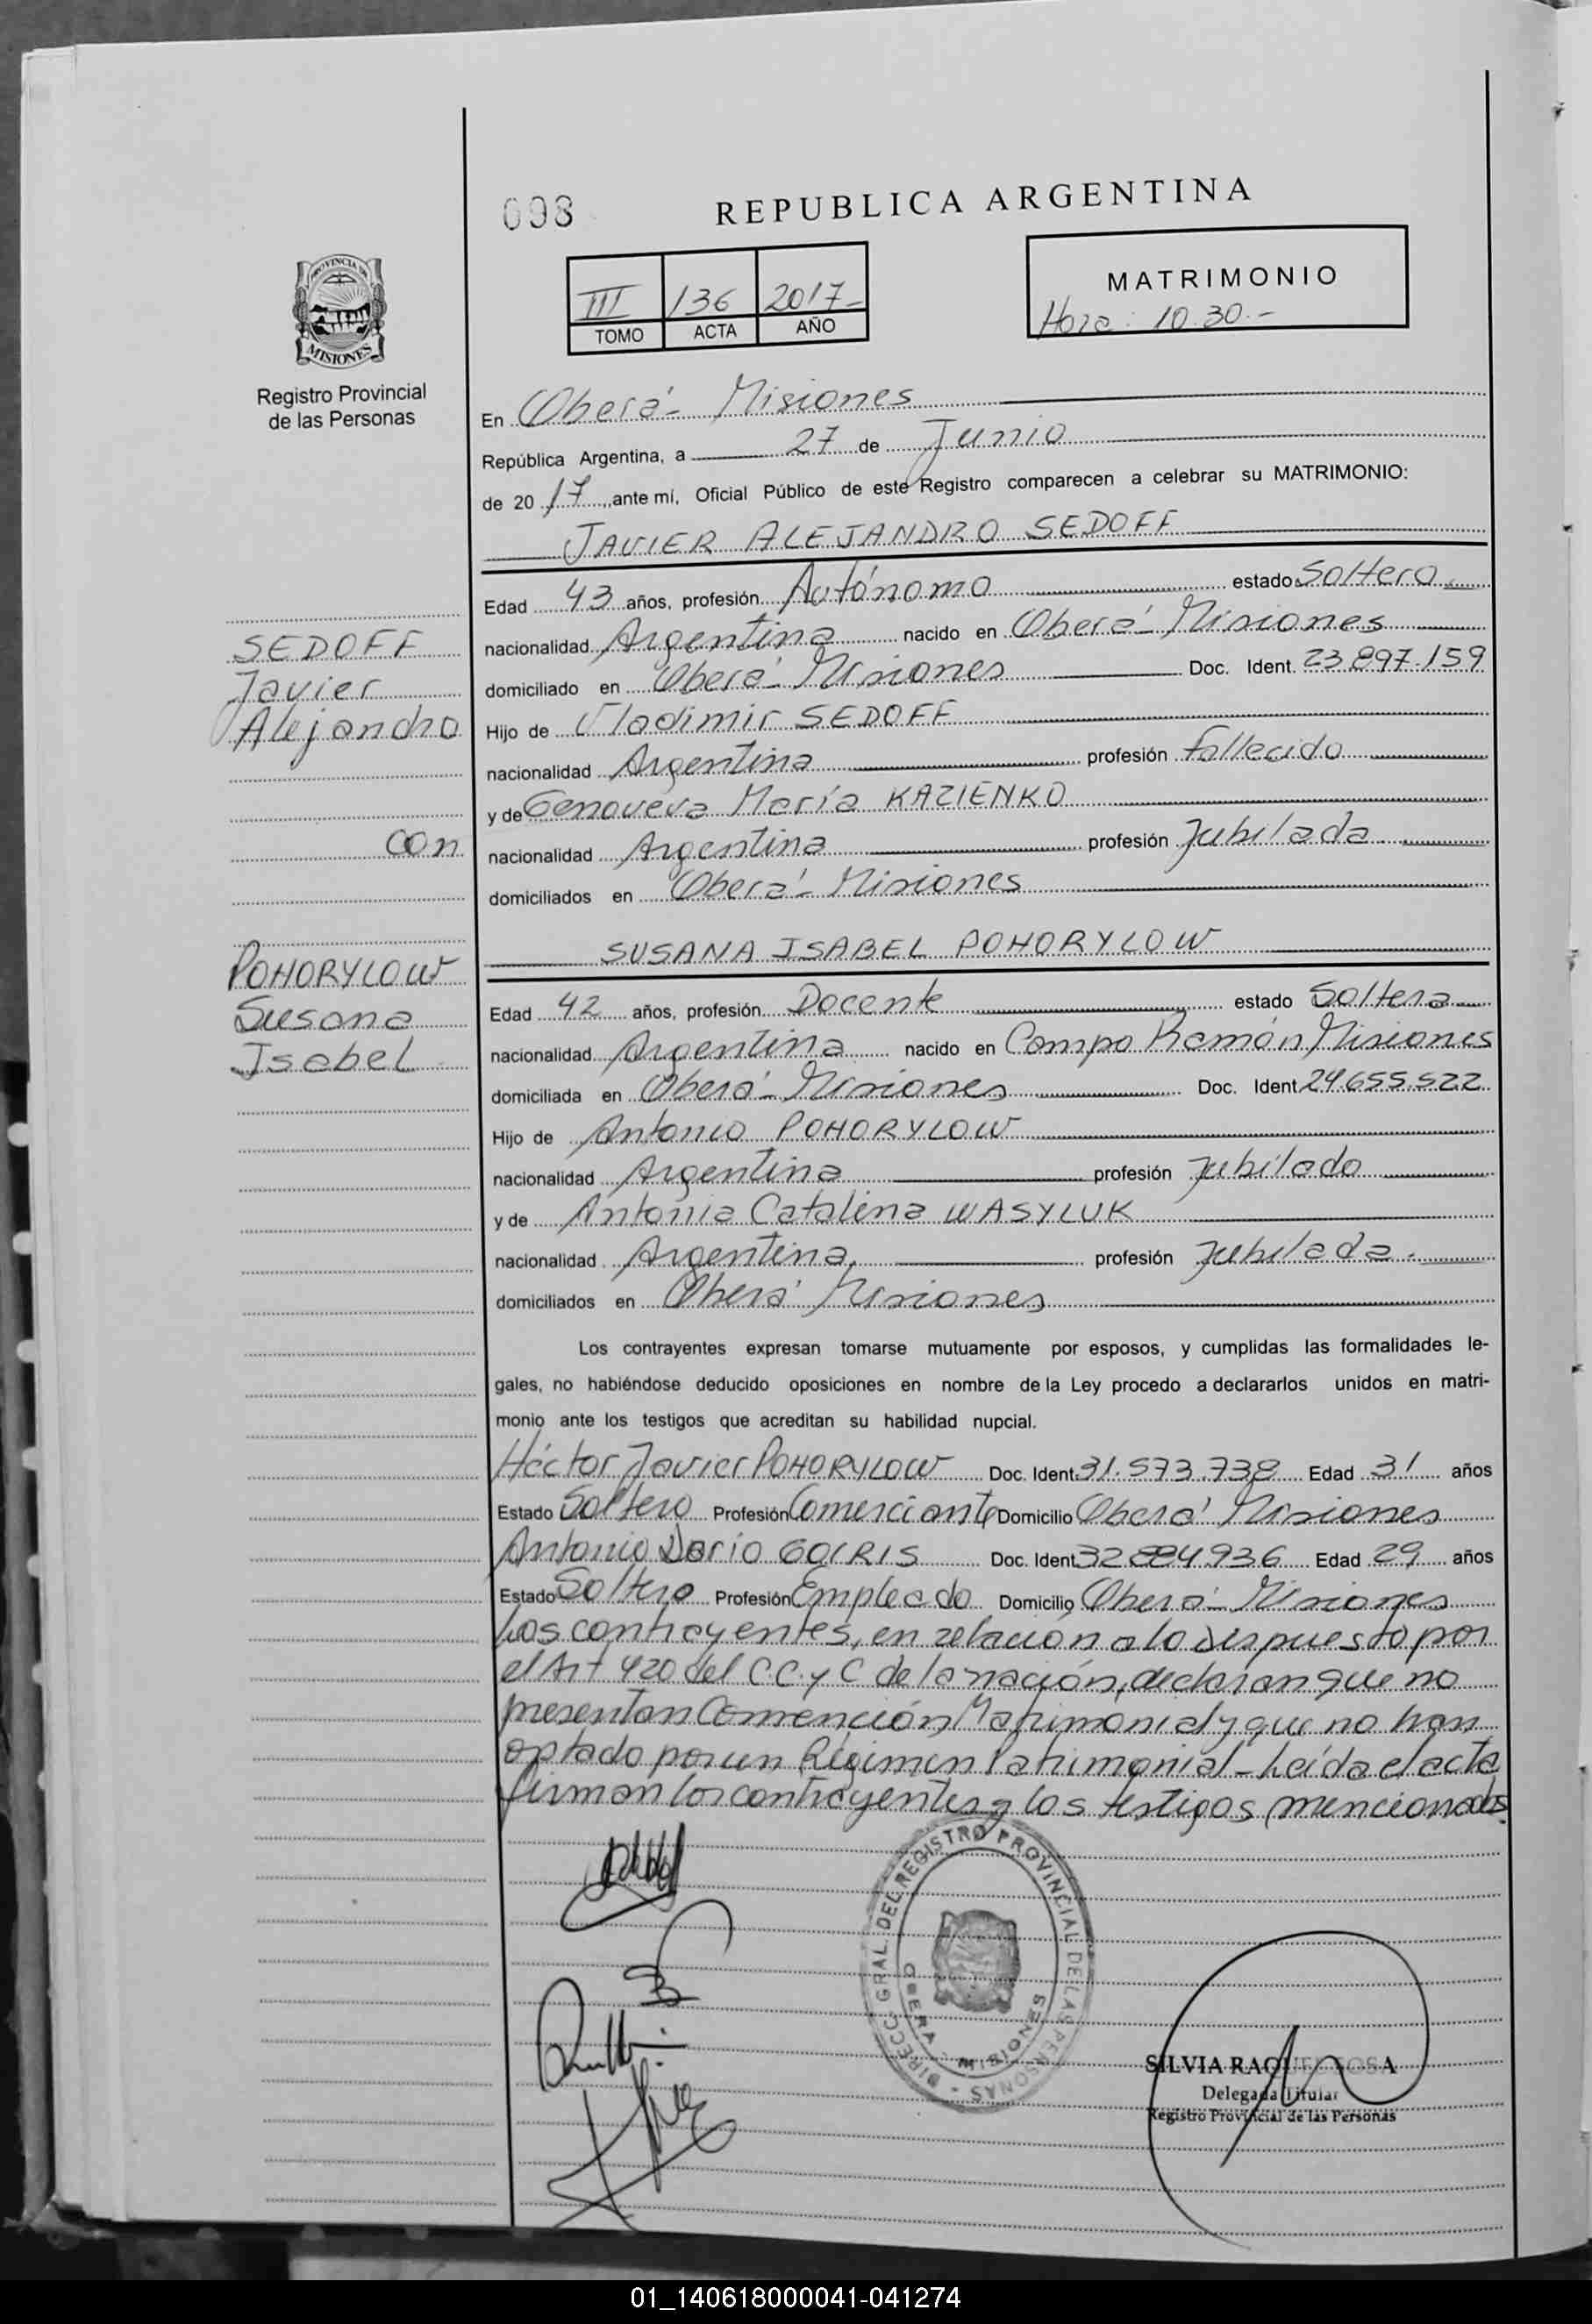 098
REPUBLICA ARGENTINA
PROVINCIA DE
MISIONES
Registro Provincial
de las Personas
III 136 2017-
TOMO ACTA AÑO
MATRIMONIO
Hora: 10.30.-
En Oberá - Misiones
República Argentina, a 27 de Junio
de 2017, ante mi, Oficial Público de este Registro comparecen a celebrar su MATRIMONIO:
JAVIER ALEJANDRO SEDOFF
Edad 43 años, profesión Autónomo estado Soltero
nacionalidad Argentina nacido en Oberá - Misiones
domiciliado en Oberá - Misiones Doc. Ident. 23.897.159
Hijo de Vladimir SEDOFF
nacionalidad Argentina profesión fallecido
y de Genoveva María KAZIENKO
nacionalidad Argentina profesión Jubilada
domiciliados en Oberá - Misiones
SEDOFF
Javier
Alejandro
con
POHORYLOW
Susana
Isabel
SUSANA ISABEL POHORYLOW
Edad 42 años, profesión Docente estado Soltera
nacionalidad Argentina nacido en Campo Ramón Misiones
domiciliada en Oberá - Misiones Doc. Ident. 24.655.522
Hijo de Antonio POHORYLOW
nacionalidad Argentina profesión Jubilado
y de Antonia Catalina WASYLUK
nacionalidad Argentina profesión Jubilada.
domiciliados en Oberá Misiones
Los contrayentes expresan tomarse mutuamente por esposos, y cumplidas las formalidades le-
gales, no habiéndose deducido oposiciones en nombre de la Ley procedo a declararlos unidos en matri-
monio ante los testigos que acreditan su habilidad nupcial.
Héctor Javier POHORYLOW Doc. Ident. 31.573.738 Edad 31 años
Estado Soltero Profesión Comerciante Domicilio Oberá Misiones
Antonio Darío GOIRIS Doc. Ident. 32.884.936 Edad 29 años
Estado Soltero Profesión Empleado Domicilio Oberá - Misiones
Los contrayentes, en relación a lo dispuesto por
el Art 420 del C.C. y C de la nación, declaran que no
presentan Convención Matrimonial y que no han
optado por un Régimen Patrimonial - Leída el acta
firman los contrayentes y los testigos mencionados.
DIRECC. GRAL. DEL REGISTRO PROVINCIAL DE LAS PERSONAS -
OBERA - MISIONES
SILVIA RAQUEL SOSA
Delegada Titular
Registro Provincial de las Personas
01_140618000041-041274